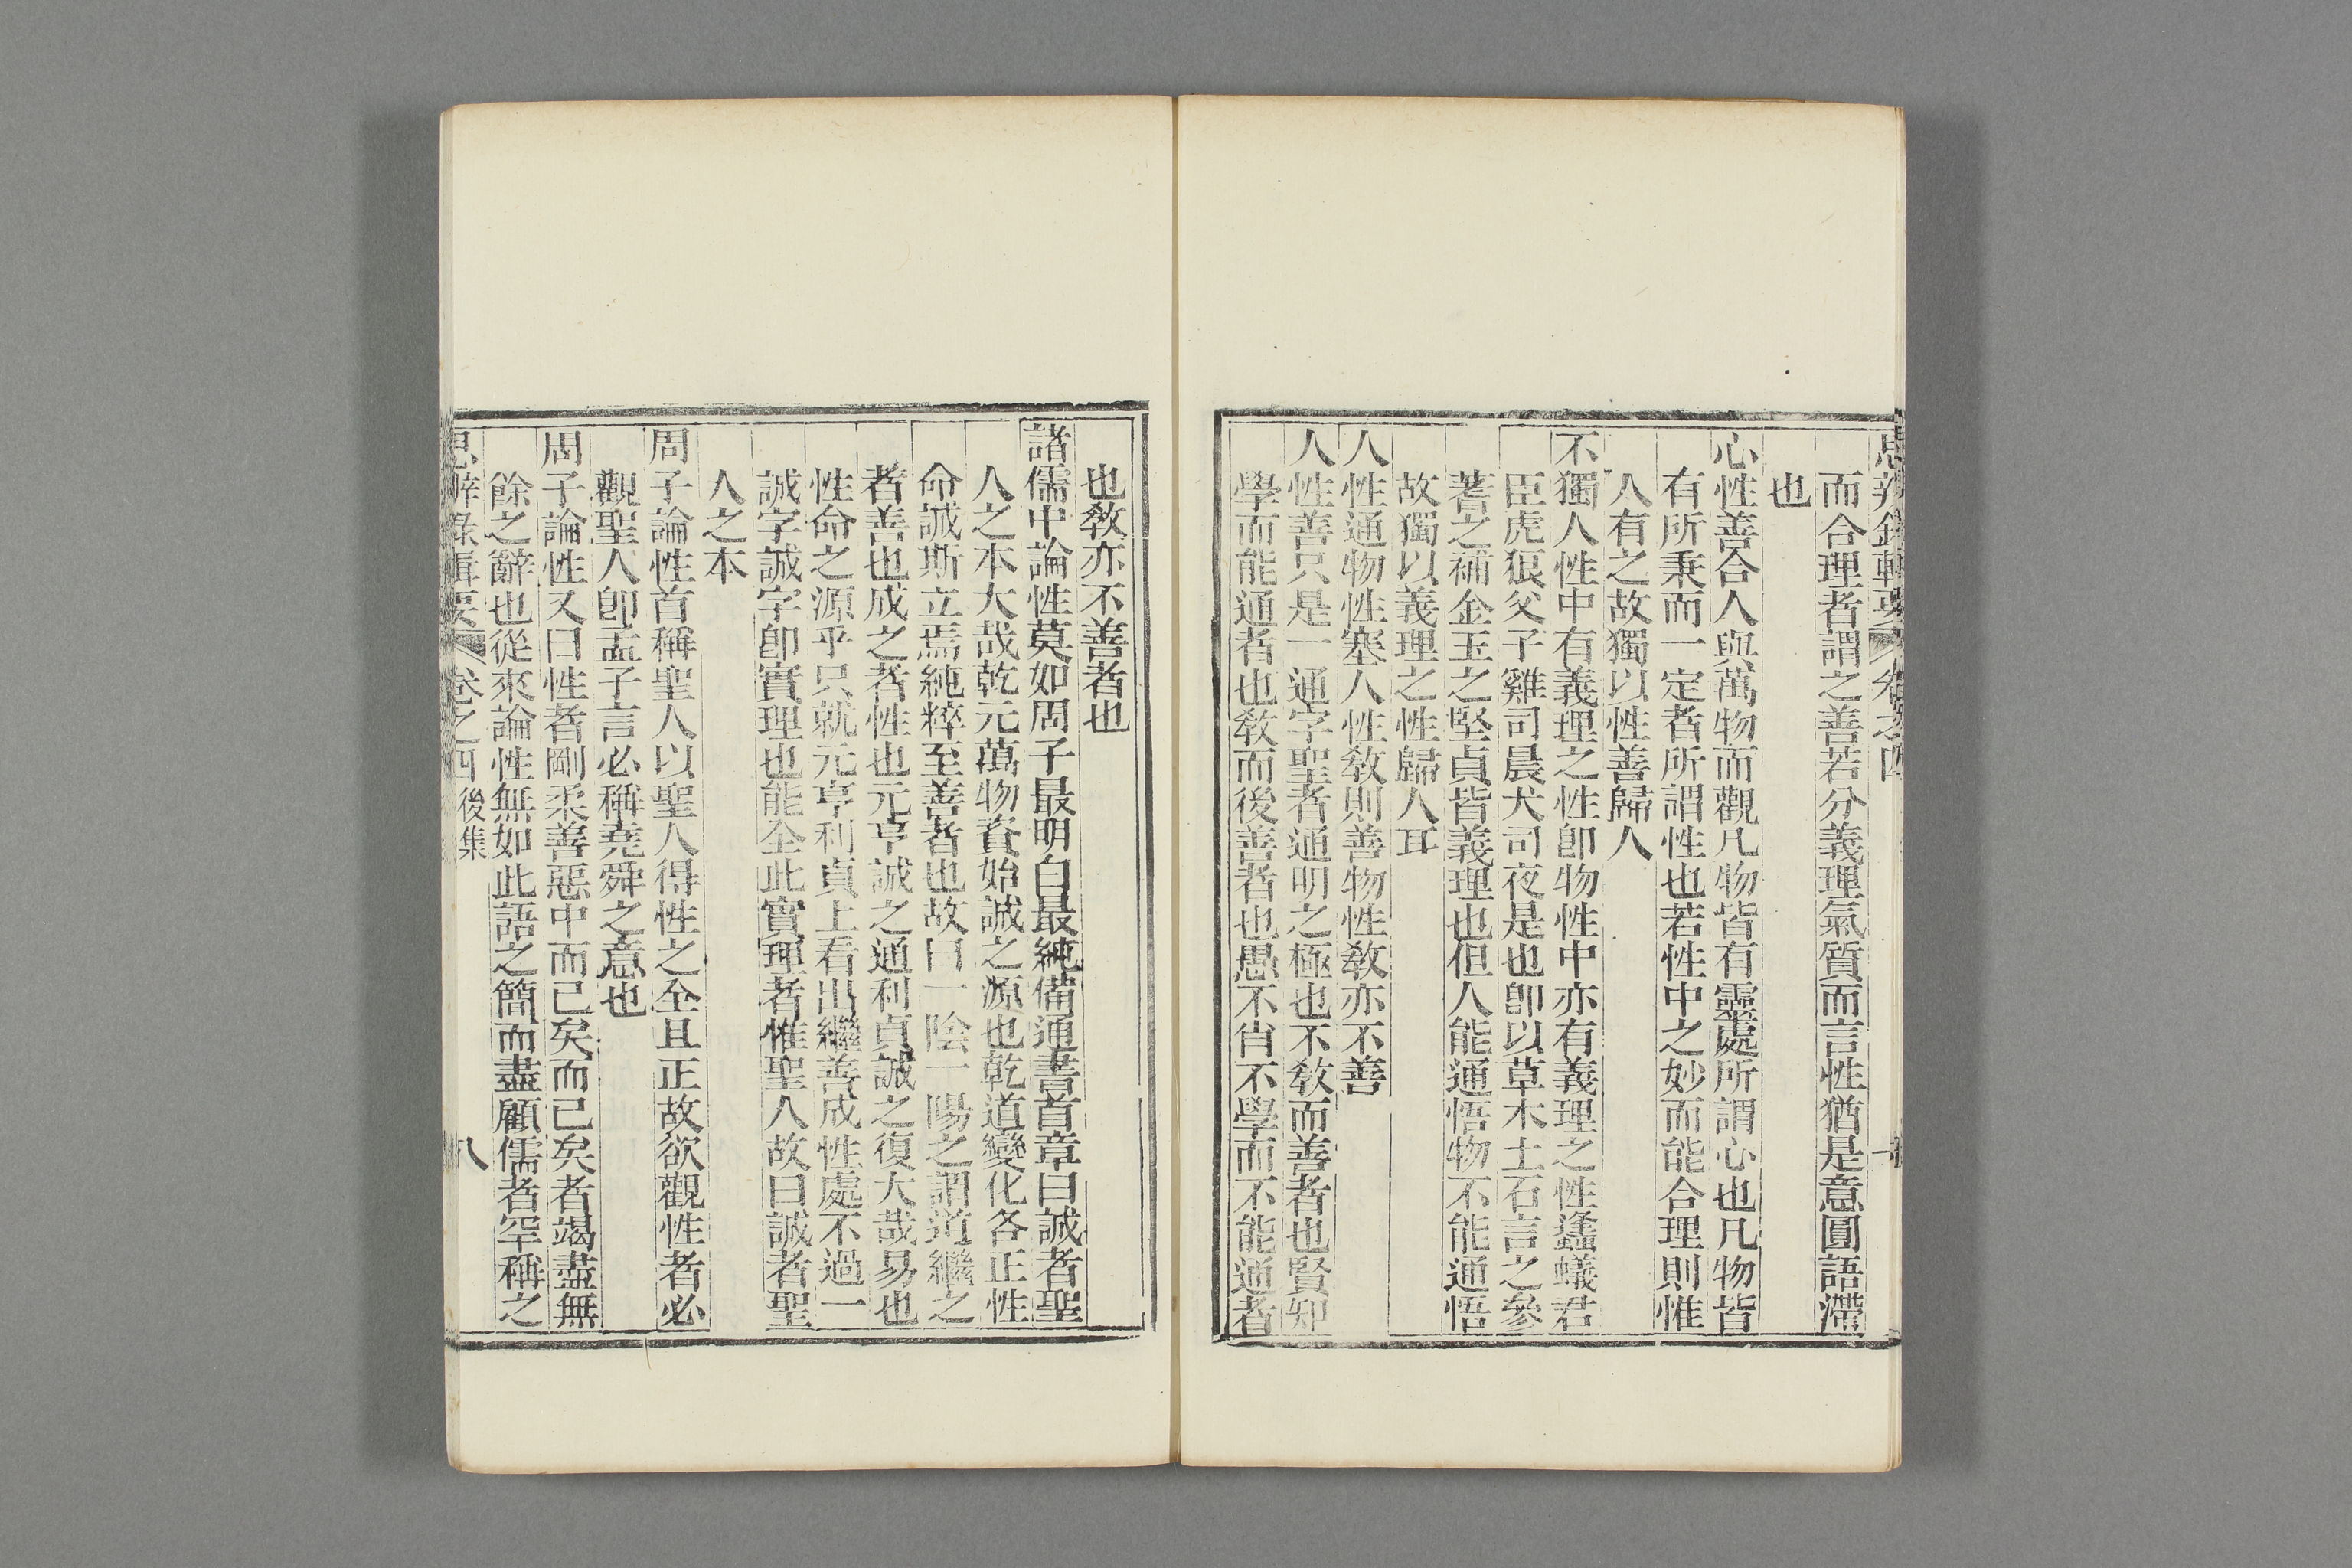 思辨錄輯要 卷之四
而合理者謂之善若分義理氣質而言性猶是意圓語滯
也
心性善合人與萬物而觀凡物皆有靈處所謂心也凡物皆
有所秉而一定者所謂性也若性中之妙而能合理則惟
人有之故獨以性善歸人
不獨人性中有義理之性卽物性中亦有義理之性螽蟻君
臣虎狼父子雞司晨犬司夜是也卽以草木土石言之參
蓍之補金玉之堅貞皆義理也但人能通悟物不能通悟
故獨以義理之性歸人耳
人性通物性塞人性敎則善物性敎亦不善
人性善只是一通字聖者通明之極也不敎而善者也賢知
學而能通者也敎而後善者也愚不肖不學而不能通者
也敎亦不善者也
諸儒中論性莫如周子最明白最純備通書首章曰誠者聖
人之本大哉乾元萬物資始誠之源也乾道變化各正性
命誠斯立焉純粹至善者也故曰一陰一陽之謂道繼之
者善也成之者性也元亨誠之通利貞誠之復大哉易也
性命之源乎只就元亨利貞上看出繼善成性處不過一
誠字誠字卽實理也能全此實理者惟聖人故曰誠者聖
人之本
周子論性首稱聖人以聖人得性之全且正故欲觀性者必
觀聖人卽孟子言必稱堯舜之意也
周子論性又曰性者剛柔善惡中而已矣而已矣者竭盡無
餘之辭也從來論性無如此語之簡而盡顧儒者罕稱之
思辨錄輯要 卷之四 後集 八